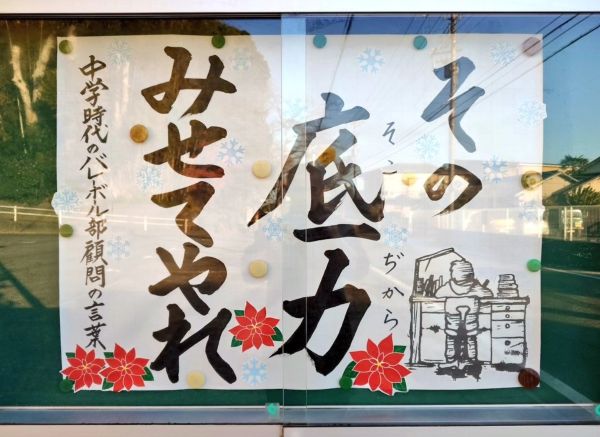 その
底力
そこぢから
みせてやれ
中学時代のバレーボール部顧問の言葉